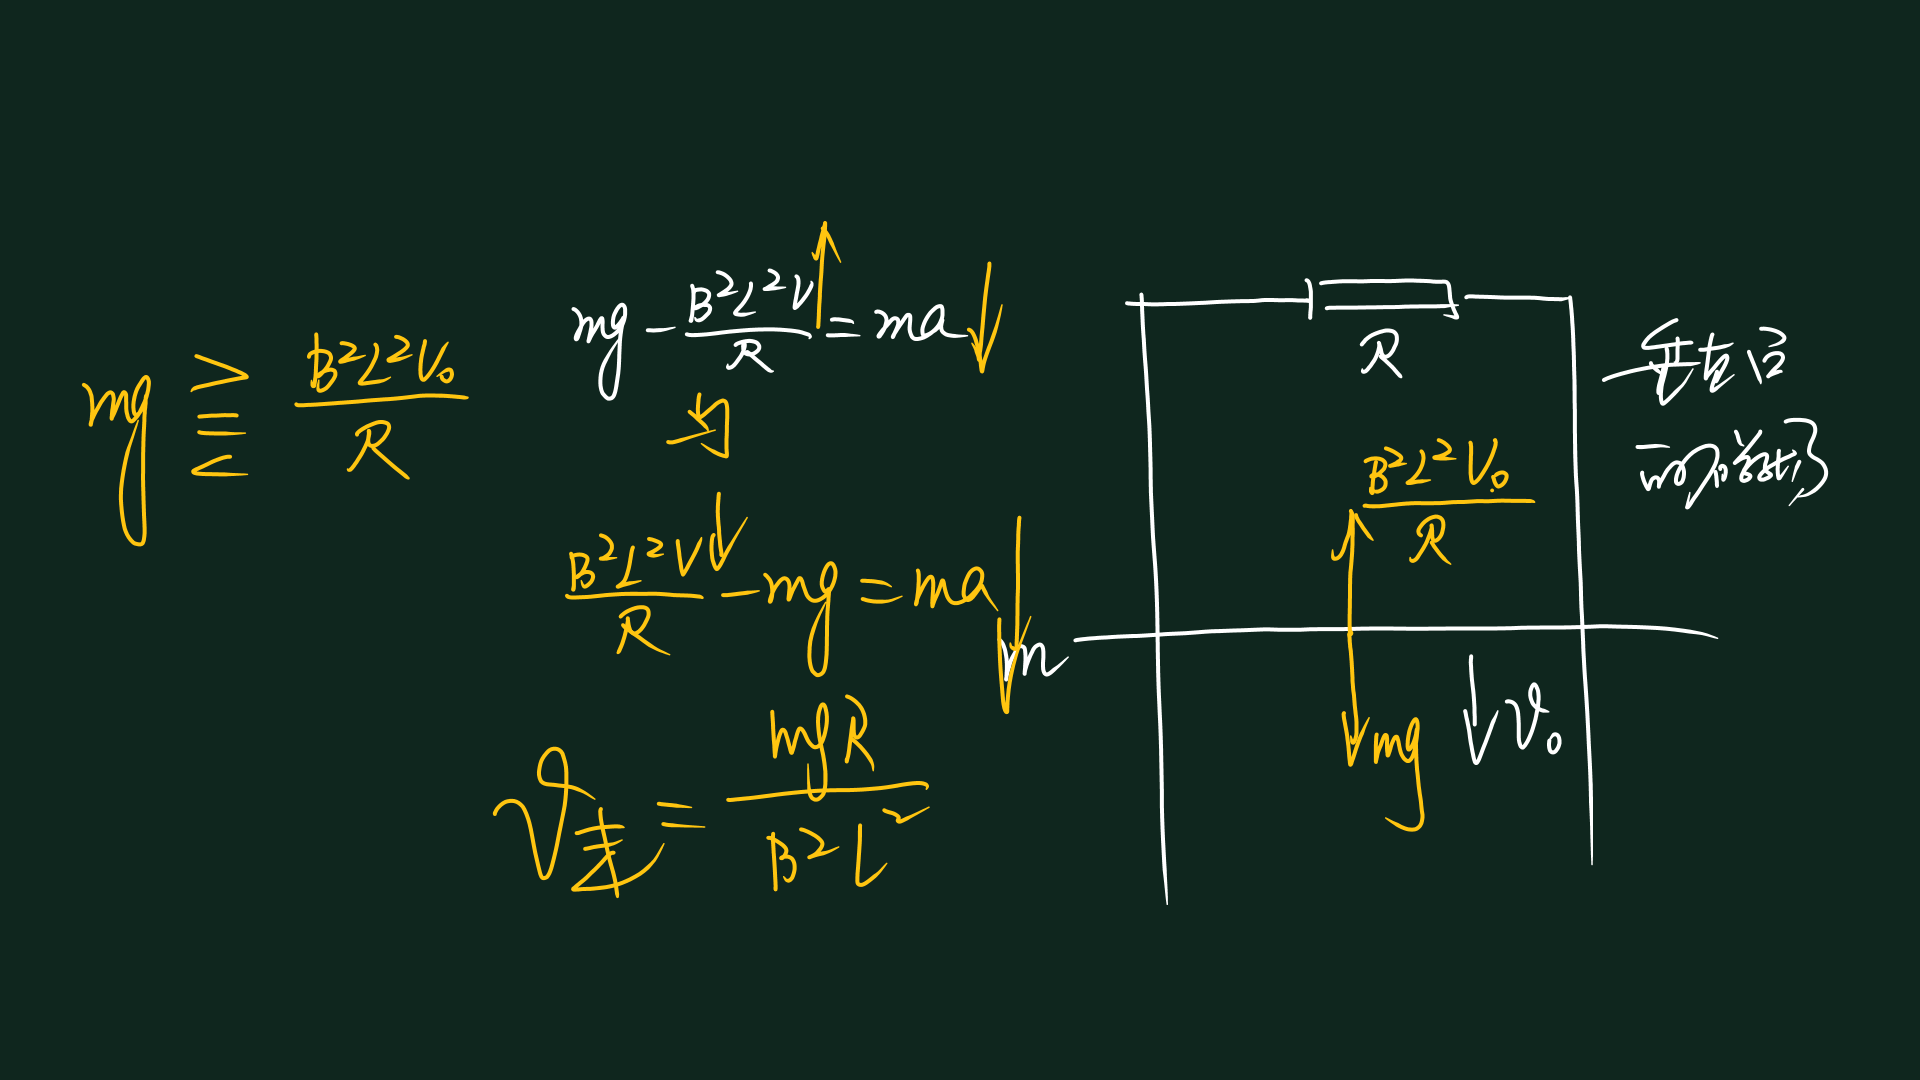 mg ≥ = < B²L²V₀/R
mg - B²L²V↑/R = ma↓
匀
B²L²V↓/R - mg = ma↓
V末 = mgR/B²L²
R
B²L²V₀/R
m
mg
↓V₀
垂直